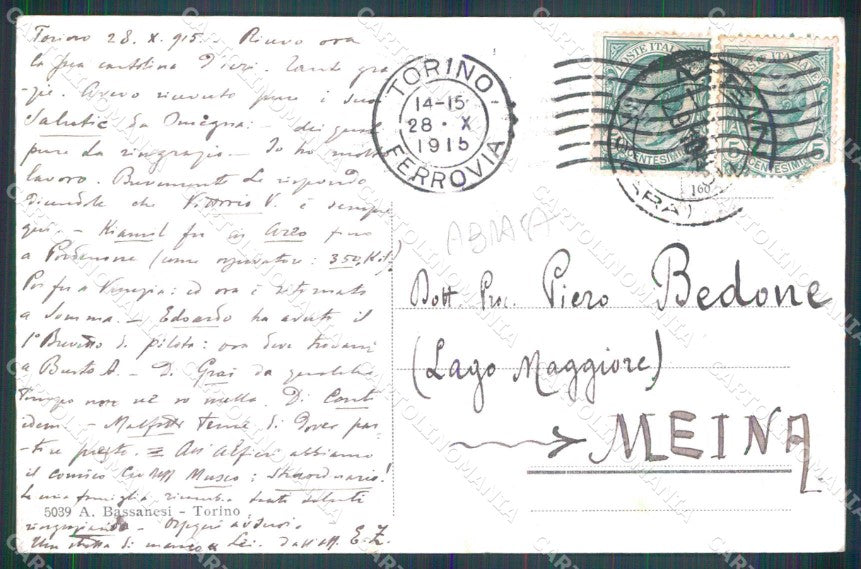 Torino 28. X. 915. - Ricevo ora
la sua cartolina d'ieri. Tante gra-
zie. Avevo ricevuto pure i suoi
saluti da : dei quali
pure la ringrazio - Io ho molto
lavoro. Brevemente Le rispondo
dicendole che Vittorio V. è sempre
qui. - fu in fino
a Pordenone (come : 350 K.!)
Poi fu a Venezia: ed ora è ritornato
a Somma. - Edoardo ha avuto il
1° Brevetto di pilota: ora deve trovarsi
a Busto A. - Di da qualche
tempo non né so nulla. Di Conti
idem. - teme di dover par-
tire presto. = All'Alfieri abbiamo
il comico Musco: straordinario!
La mia famiglia ricambia tanti saluti
ringraziando -
Una stretta di mano a Lei. dall'aff. E. Z.
5039 A. Bassanesi - Torino
TORINO
14-15
28 · X
1915
FERROVIA
POSTE ITALIANE
CENTESIMI
POSTE ITALIANE
5 CENTESIMI 5
MEINA
160
Dott. Proc. Piero Bedone
(Lago Maggiore)
MEINA
CARTOLINOMANIA